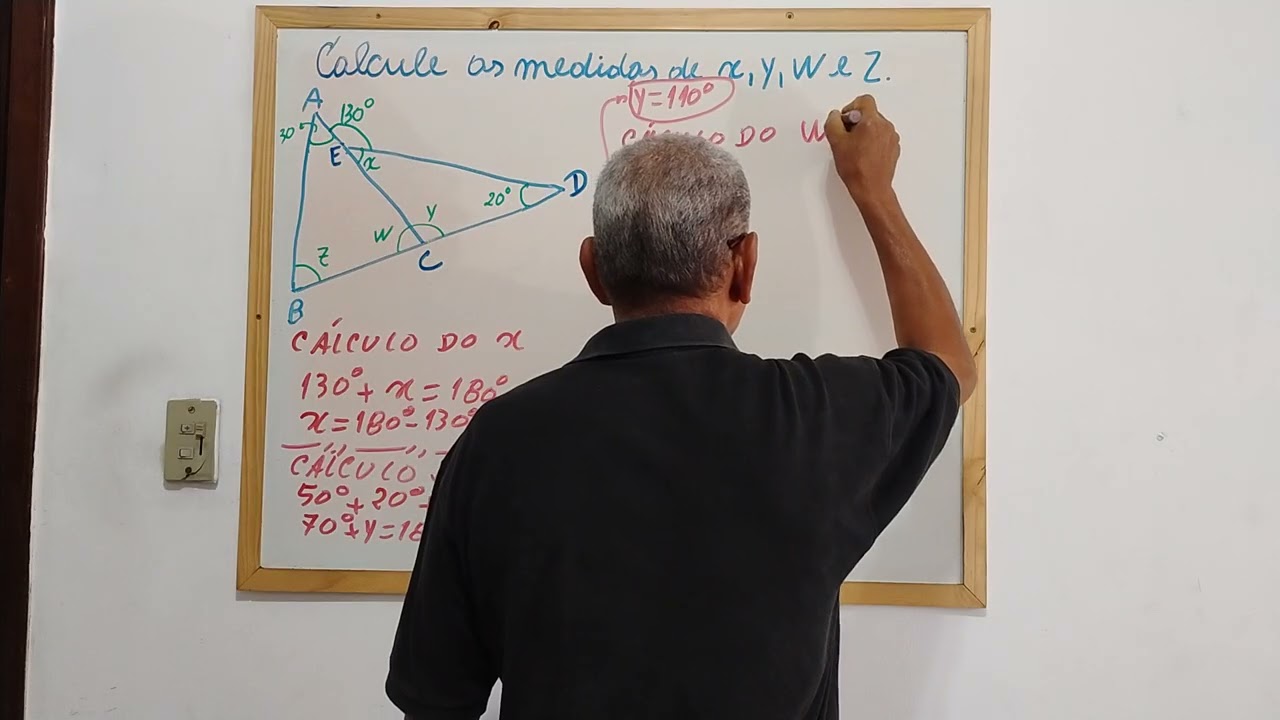 Calcule as medidas de x, y, W e Z.
A
130°
30°
E
x
D
20°
Y
W
Z
C
B
Y=110°
DO W
CÁLCULO DO x
130°+ x = 180°
x = 180°- 130°
CÁLCULO
50°+ 20°+
70°+ Y = 18